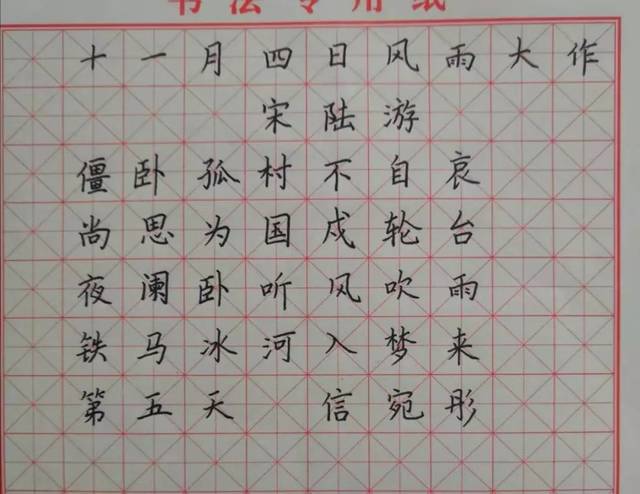 书法专用纸
十一月四日风雨大作
宋陆游
僵卧孤村不自哀
尚思为国戍轮台
夜阑卧听风吹雨
铁马冰河入梦来
第五天 信宛彤